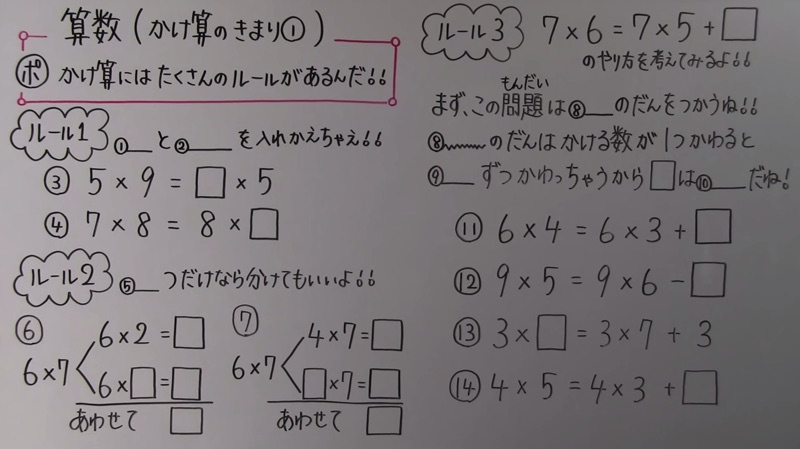 算数(かけ算のきまり①)
ポ かけ算にはたくさんのルールがあるんだ!!
ルール1 ①__と②__を入れかえちゃえ!!
③ 5×9=□×5
④ 7×8=8×□
ルール2 ⑤__つだけなら分けてもいいよ!!
⑥ 6×7
6×2=□
6×□=□
あわせて □
⑦ 6×7
4×7=□
□×7=□
あわせて □
ルール3 7×6=7×5+□
のやり方を考えてみるよ!!
もんだい
まず、この問題は⑧__のだんをつかうね!!
⑧__のだんはかける数が1つかわると
⑨__ずつかわっちゃうから□は⑩__だね!
⑪ 6×4=6×3+□
⑫ 9×5=9×6-□
⑬ 3×□=3×7+3
⑭ 4×5=4×3+□